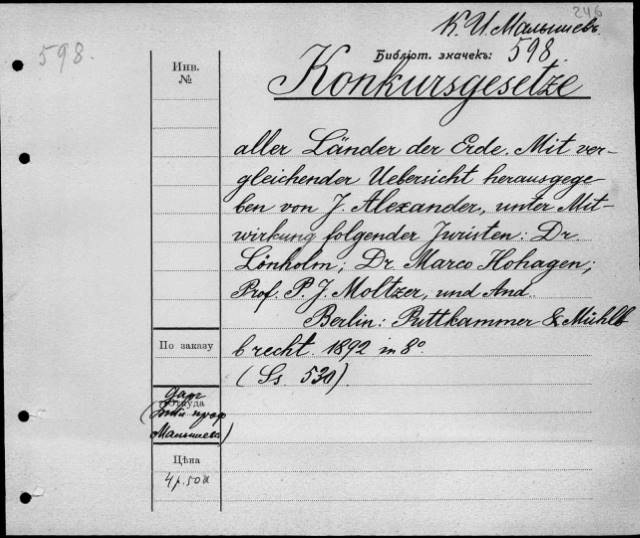 246
К. И. Малышевъ.
598.
Библіот. значекъ: 598.
Инв.
№
Konkursgesetze
aller Länder der Erde. Mit ver-
gleichender Uebersicht herausgege-
ben von J. Alexander, unter Mit-
wirkung folgender Juristen: Dr
Lönholm; Dr. Marco Hohagen;
Prof. P. J. Moltzer, und And.
Berlin: Puttkammer & Mühlb
brecht. 1892 in 8º
(Ss. 530).
По заказу
Даръ
Откуда
проф
Малышева)
Цѣна
4 р. 50 к